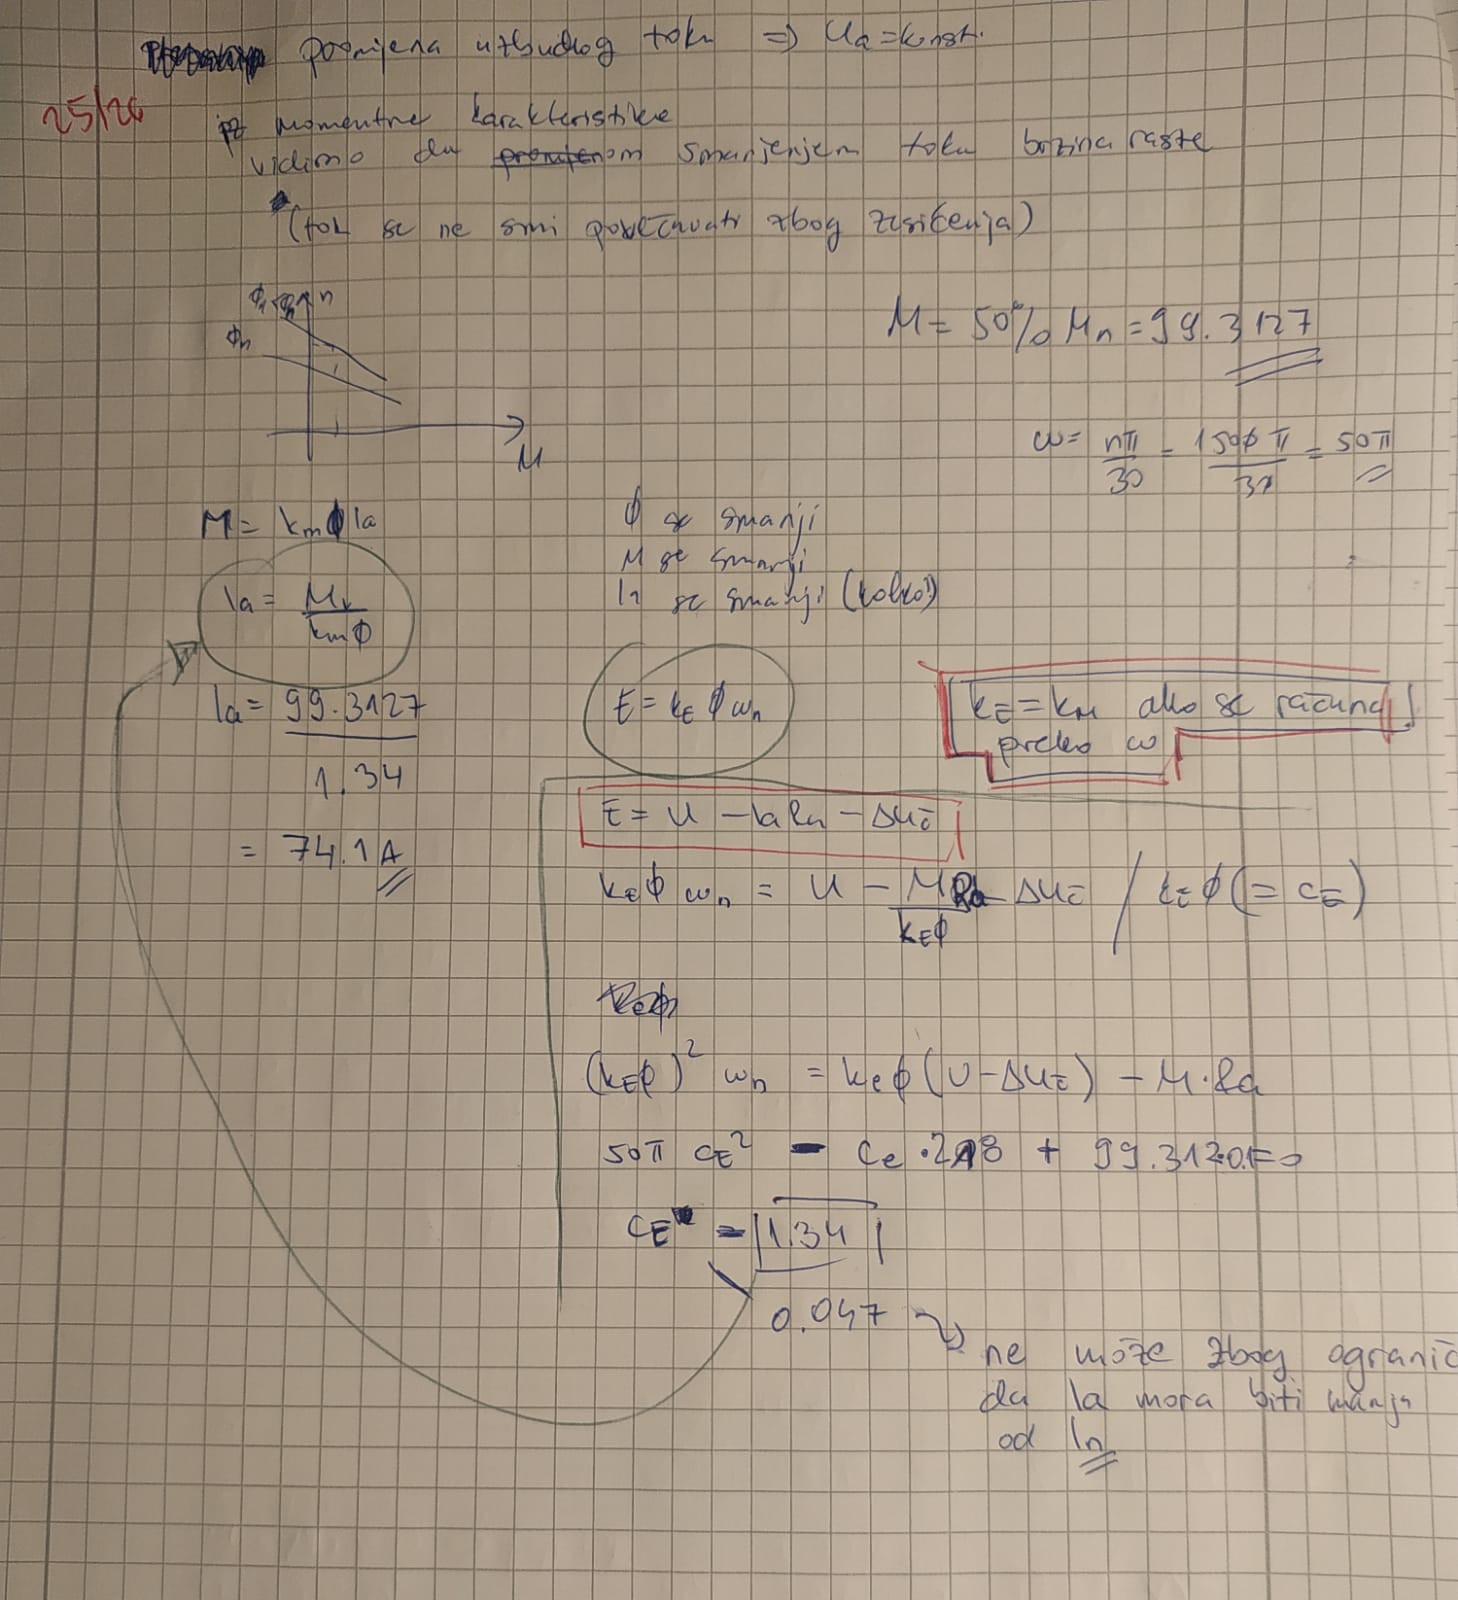 promjena uzbudnog toka => Ua=konst.
25/26
iz momentne karakteristike
vidimo da smanjenjem toka brzina raste
(tok se ne smi povećavati zbog zasićenja)
ϕ1 n
ϕn
M
M = 50% Mn = 99.3127
ω = nπ/30 = 1500π/30 = 50π
M = km ϕ Ia
Ia = M/kmϕ
Ia = 99.3127/1.34
= 74.1A
ϕ se smanji
M se smanji
In se smanji (koliko?)
E = kE ϕ ωn
kE = kM ako se računa
preko ω
E = U - IaRa - ΔUč
kEϕ ωn = U - M Ra/kEϕ - ΔUč / kEϕ (= cE)
(kEϕ)² ωn = kEϕ (U - ΔUč) - M·Ra
50π cE² - ce·218 + 99.312·0.1=0
cE = 1.34
0.047
ne može zbog ogranič
da Ia mora biti manja
od In